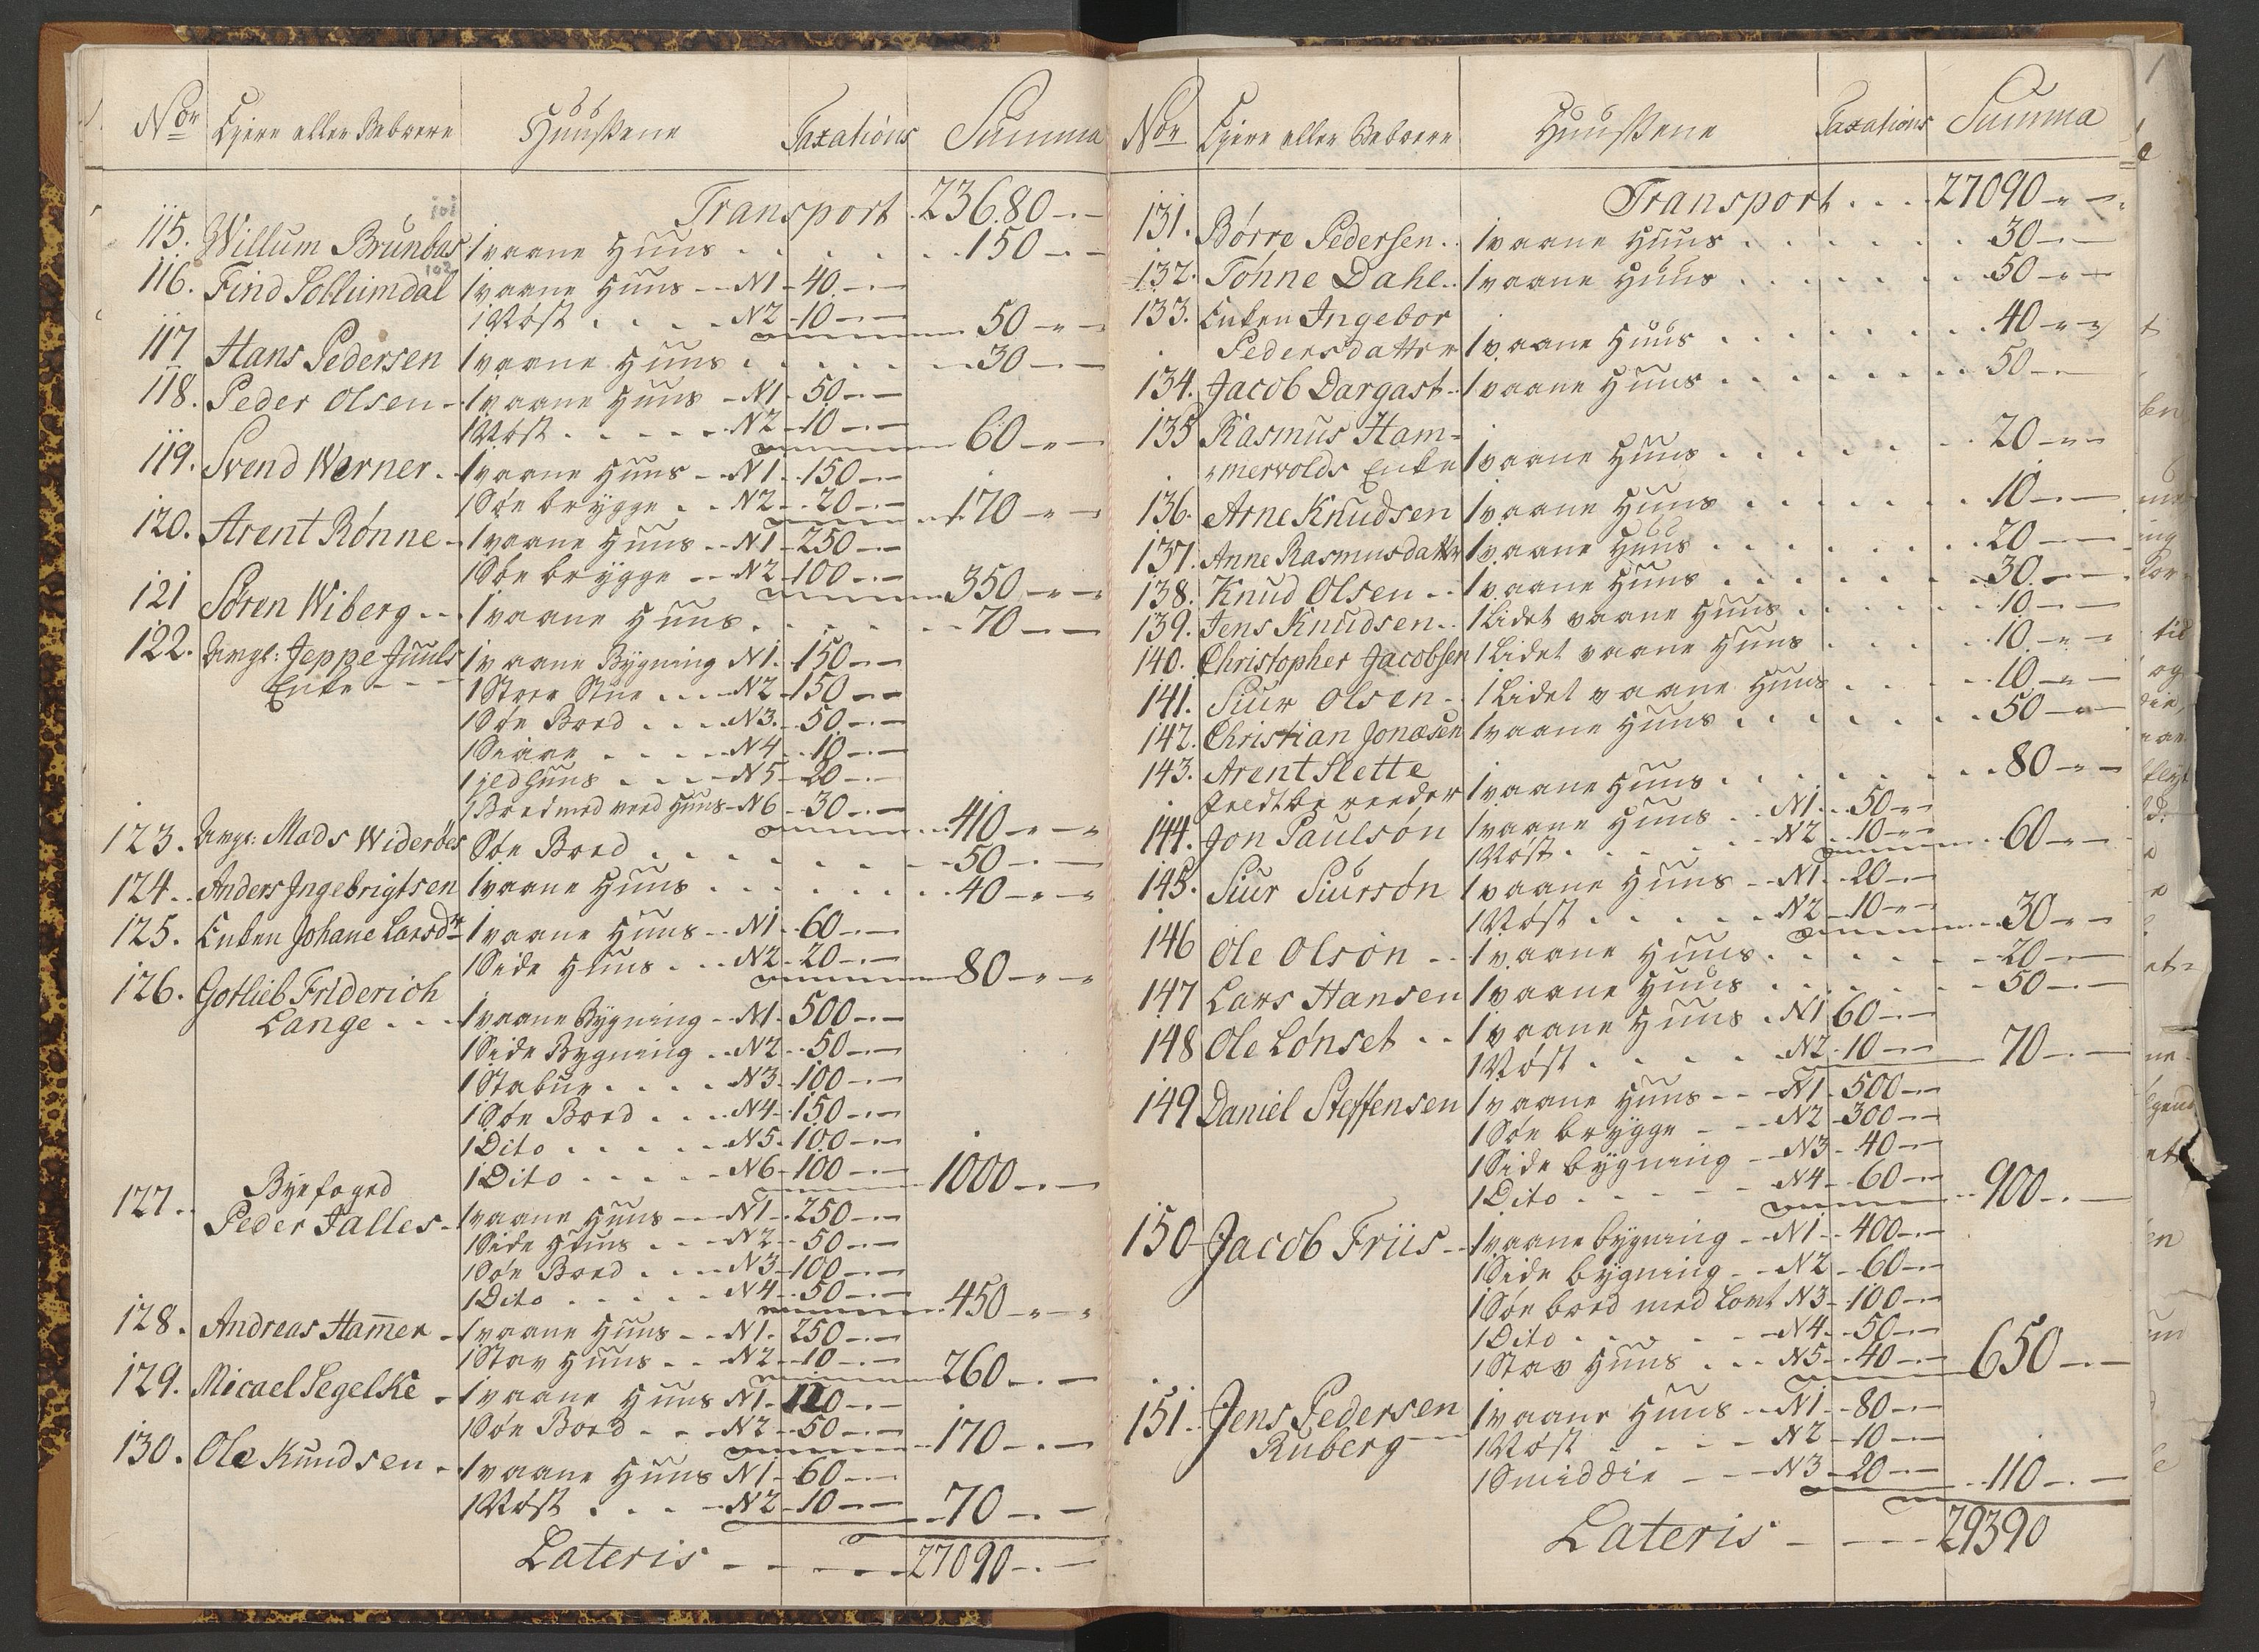 Nor Ejere eller Beboere Huusene Taxations Summa
Transport . 23680 - . -
101
115. Willum Brunbas 1 vaane Huus . . . . . . 150 - . -
102
116. Find Sollumdal 1 vaane Huus - - N1 - 40 - . -
1 Nøst . . . . N2 - 10 - . - 50 - " -
117 Hans Pedersen 1 vaane Huus . . . . . 30 - . -
118. Peder Olsen - 1 vaane Huus - N1 - 50 - . -
1 Nøst . . . . . N2 - 10 - . - 60 - " -
119. Svend Werner . 1 vaane Huus - - N1 - 150 - . -
1 Søe brygge . . N2 - 20 - . - 170 - " -
120. Arent Rønne - 1 vaane Huus - - N1 - 250 - . -
1 Søe brygge - - N2 - 100 - . - 350 - " -
121 Søren Wiberg . . . 1 vaane Huus . . . . . 70 - . -
122. Avgl: Jeppe Juuls 1 vaane Bygning N1. - 150 - . -
Enke - - - 1 Store Stue . . . - N2 - 150 - . -
1 Søe Boed . . . - N3. - 50 - . -
1 Siaae . . . . - N4 - 10 - . -
1 jld Huus . . . - N5 - 20 - . -
1 Boed med veed Huus - N6 - 30 - . - 410 - " -
123. Avgl: Mads Widerøes Søe Boed . . . . . . . 50 - . -
124. . Anders Jngebrigtsen 1 vaane Huus . . . . . . . 40 - " -
125. Enken Johane Larsdtr 1 vaane Huus - - N1 - 60 - . -
1 Side Huus . . . N2 - 20 - . - 80 - " -
126. Gotlieb Friderich
Lange . . . 1 vaane Bygning - - N1 - 500 - . -
1 Side Bygning . . - N2 - 50 - . -
1 Stabur . . . . N3 - 100 - . -
1 Søe Boed . . . - N4 - 150 - . -
1 Dito . . . . . N5 - 100 - . -
1 Dito . . . . . N6 - 100 - . - 1000 - . -
127. . Byefoged
Peder Jalles - 1 vaane Huus - - - N1 - 250 - . -
1 Side Huus . . - N2 - 50 - . -
1 Søe Boed . . . - N3 - 100 - . -
1 Dito . . . . . N4 - 50 - . - 450 - " -
128. Andreas Ham̅er - 1 vaane Huus - - N1. 250 - . -
1 Stav Huus . . - N2 - 10 - . - 260 - . -
129. Micael Segelke - 1 vaane Huus N1. 120 - . -
1 Søe Boed - . - N2 - 50 - . - 170 - . -
130. Ole Knudsen - 1 vaane Huus N1 - 60 - . -
1 Nøst . . . - N2 - 10 - . - 70 - . -
Lateris - - - - - - 27090 - . -
Nor Ejere eller Beboere Huusene Taxations Summa
Transport . . . 27090 - " -
131. Børre Pedersen . . 1 vaane Huus . . . . . . 30 - . -
132. Tønne Dahl . . 1 vaane Huus . . . . . . 50 - " -
133. Enken Ingebor
Pedersdatter 1 vaane Huus . . . . . . 40 - " -
134. Jacob Dargast - 1 vaane Huus . . . . . . 50 - " -
135 Rasmus Ham=
=mervolds Enke 1 vaane Huus . . . . . . 20 - " -
136. Arne Knudsen 1 vaane Huus . . . . . . 10 - . -
137. Anne Rasmusdatter 1 vaane Huus . . . . . . 20 - . -
138. Knud Olsen . . 1 vaane Huus . . . . . . 30 - . -
139. Jens Knudsen . . 1 Lidet vaane Huus . . . . . . 10 - . -
140. Christopher Jacobsen 1 Lidet vaane Huus . . . . . 10 - " -
141. Siur Olsen - . 1 Lidet vaane Huus . . . . . 10 - " -
142. Christian Jonæsen 1 vaane Huus . . . . . . 50 - " -
143. Arent Slette
Feldbereeder 1 vaane Huus . . . . . . 80 - " -
144. Jon Paulsøn 1 vaane Huus . . N1. - 50 - " -
1 Nøst . . . . . - N2 - 10 - " - 60 - " -
145. Siur Siursøn 1 vaane Huus - - N1 - 20 - . -
1 Nøst . . . . . - N2 - 10 - " - 30 - " -
146 Ole Olsøn - - 1 vaane Huus . . . . . . 20 - . -
147 Lars Hansen 1 vaane Huus . . . . . . 50 - . -
148 Ole Lønset . . 1 vaane Huus . N1 60 - . -
1 Nøst . . . . - N2 - 10 - . - 70 - . -
149 Daniel Steffensen 1 vaane Huus - - - N1 - 500 - . -
1 Søe brygge - - - N2 - 300 - . -
1 Side bygning - - N3 - 40 - . -
1 Dito . . . - - N4 - 60 - . - 900 - . -
150 Jacob Friis - - 1 vaane bygning - - N1 - 400 - . -
1 Side bygning - - N2 - 60 - . -
1 Søe boed med Lovt N3 - 100 - . -
1 Dito . . . . . - N4 - 50 - . -
1 Stav Huus . . . N5 - 40 - . - 650 - . -
151. . Jens Pedersen 1 vaane Huus - - N1 - 80 - . -
Ruberg - - 1 Nøst - - - - N2 - 10 - . -
1 Smiddie - - - N3 - 20 - . - 110 - . -
Lateris - - - - 29390